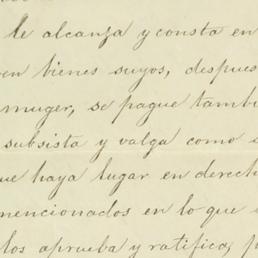 le alcanza y consta en
en bienes suyos, despues
muger, se pague tambi
subsista y valga como s
ue haya lugar en derech
mencionados en lo que
los aprueba y ratifica, p